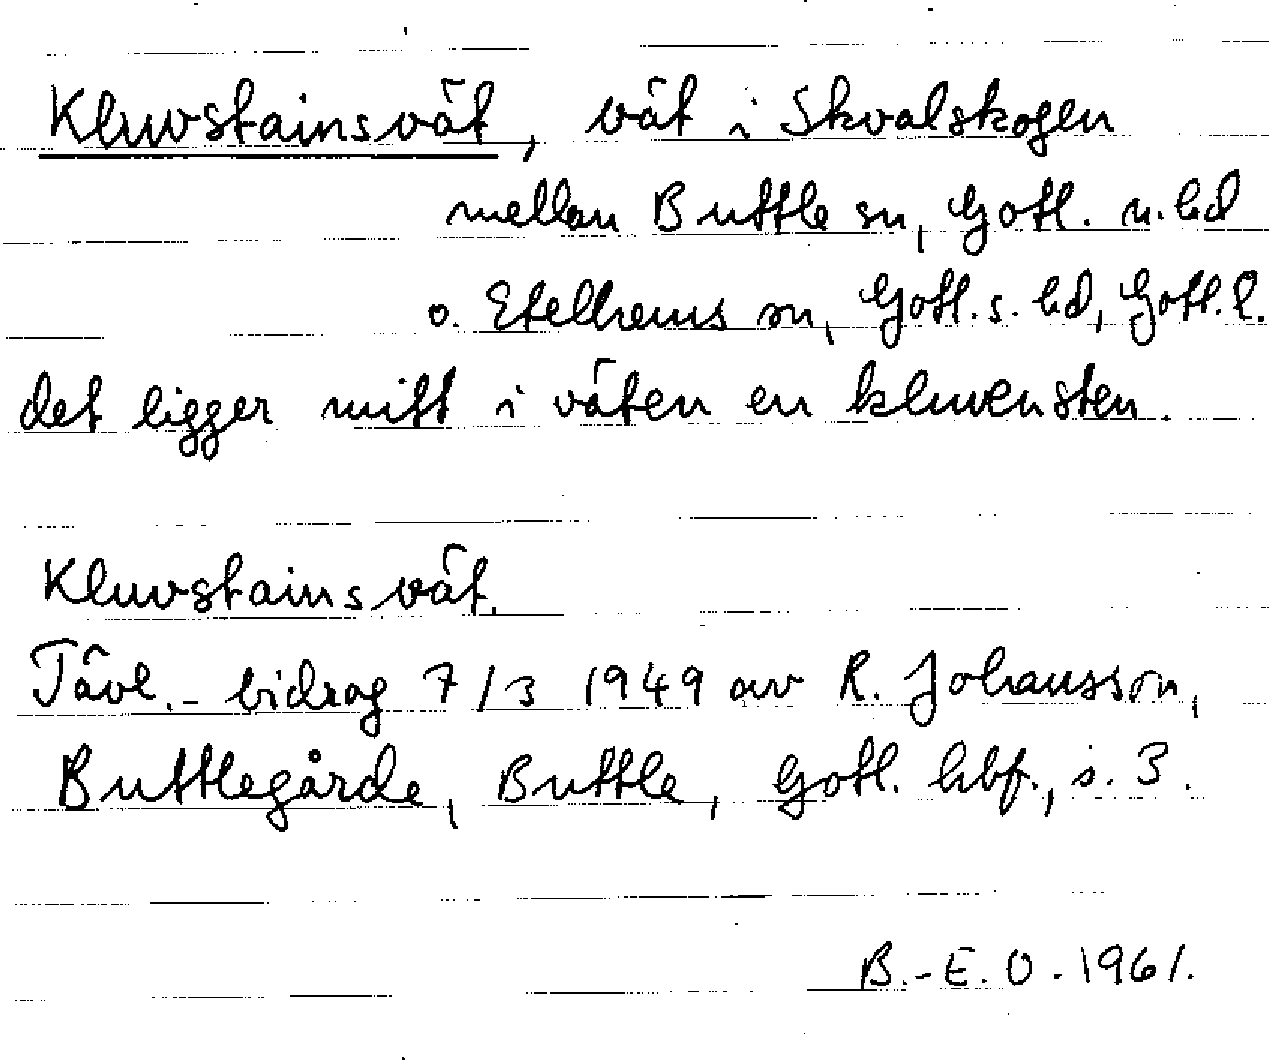 Kluvstainsvät, vät i Skvalskogen
mellan Buttle sn, Gotl. n. hd
o. Etelhems sn, Gotl. s. hd, Gotl. l.
det ligger mitt i väten en kluven sten.
Kluvstainsvät.
Tävl.- bidrag 7/3 1949 av R. Johansson,
Buttlegårde, Buttle, Gotl. hbf., s. 3.
B.-E. O. 1961.